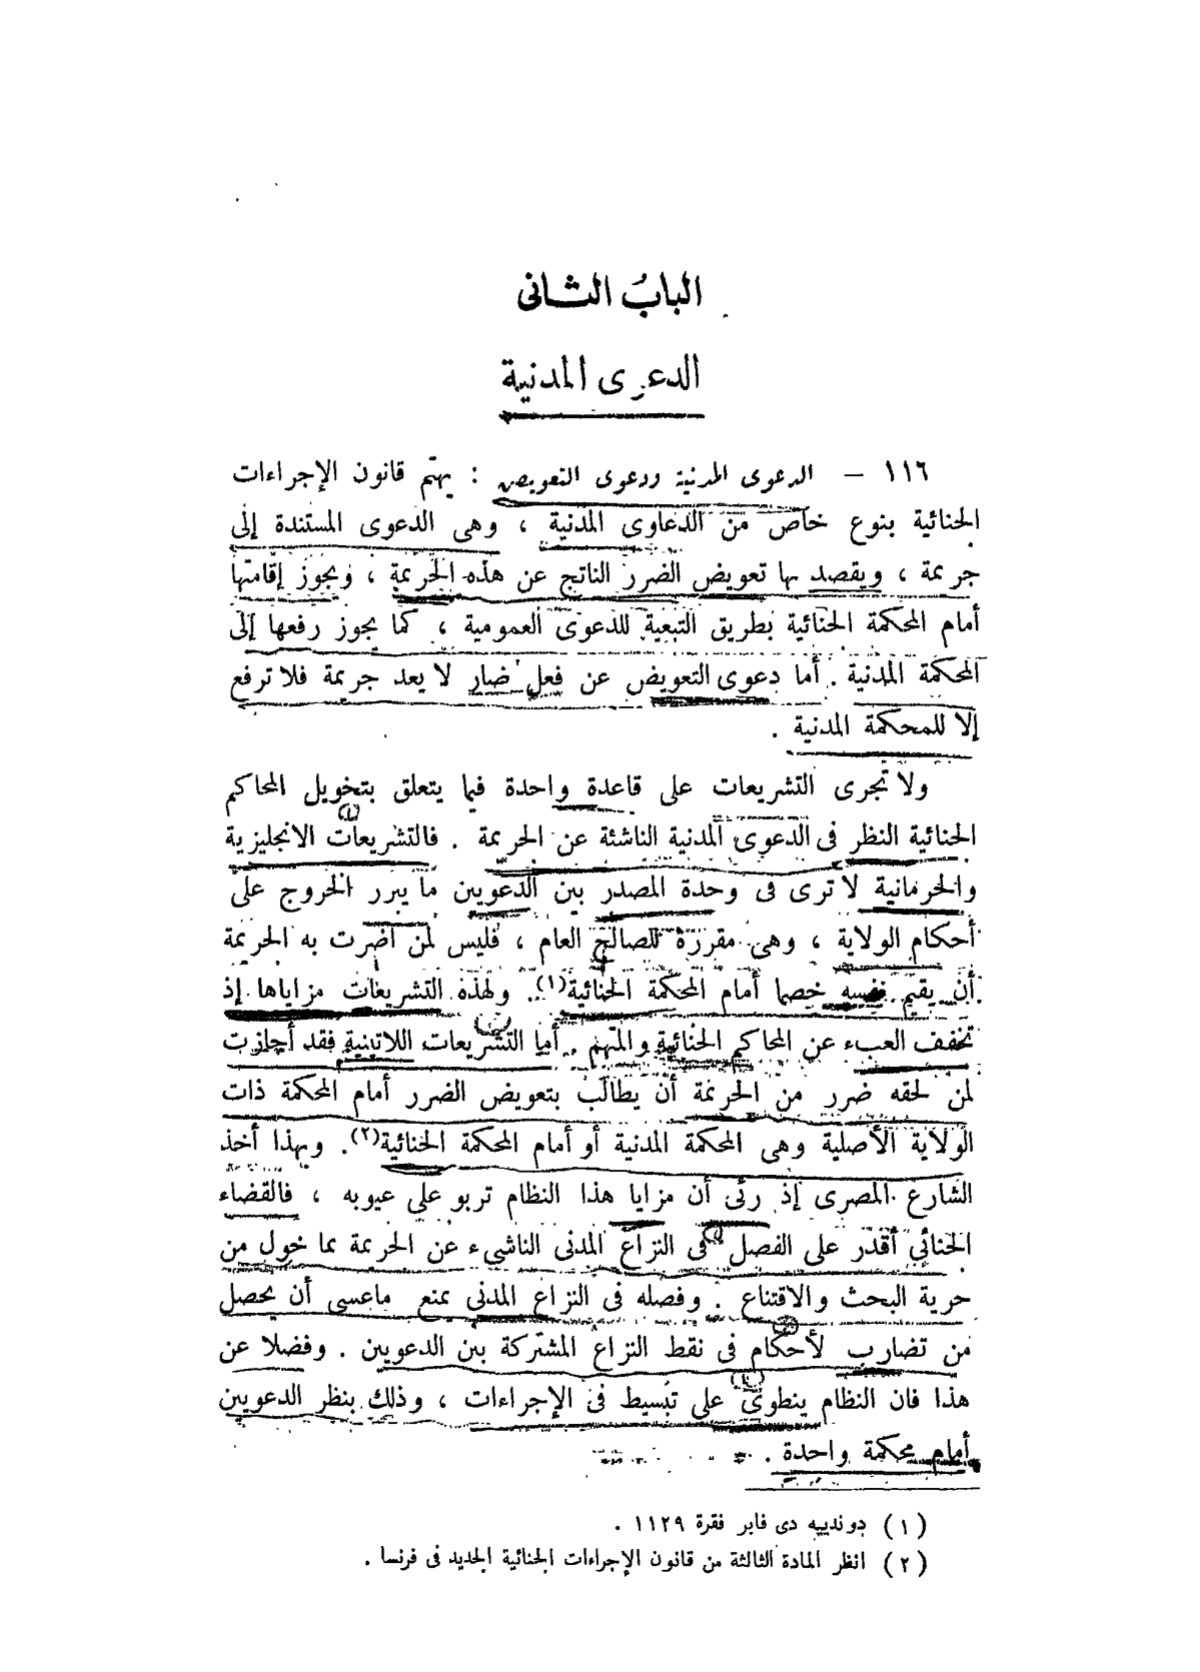 الباب الثانى
الدعوى المدنية
١١٦ — الدعوى المدنية ودعوى التعويض : يهتم قانون الإجراءات
الجنائية بنوع خاص من الدعاوى المدنية ، وهى الدعوى المستندة إلى
جريمة ، ويقصد بها تعويض الضرر الناتج عن هذه الجريمة ، ويجوز إقامتها
أمام المحكمة الجنائية بطريق التبعية للدعوى العمومية ، كما يجوز رفعها إلى
المحكمة المدنية . أما دعوى التعويض عن فعل ضار لا يعد جريمة فلا ترفع
إلا للمحكمة المدنية .
ولا تجرى التشريعات على قاعدة واحدة فيما يتعلق بتخويل المحاكم
الجنائية النظر فى الدعوى المدنية الناشئة عن الجريمة . فالتشريعات الانجليزية
والجرمانية لا ترى فى وحدة المصدر بين الدعويين ما يبرر الخروج على
أحكام الولاية ، وهى مقررة للصالح العام ، فليس لمن أضرت به الجريمة
أن يقيم نفسه خصما أمام المحكمة الجنائية(١). ولهذه التشريعات مزاياها إذ
تخفف العبء عن المحاكم الجنائية والمتهم . أما التشريعات اللاتينية فقد أجازت
لمن لحقه ضرر من الجريمة أن يطالب بتعويض الضرر أمام المحكمة ذات
الولاية الأصلية وهى المحكمة المدنية أو أمام المحكمة الجنائية(٢). وبهذا أخذ
الشارع المصرى إذ رئى أن مزايا هذا النظام تربو على عيوبه ، فالقضاء
الجنائي أقدر على الفصل فى النزاع المدنى الناشىء عن الجريمة بما خول من
حرية البحث والاقتناع . وفصله فى النزاع المدنى يمنع ماعسى أن يحصل
من تضارب لأحكام فى نقط النزاع المشتركة بين الدعويين . وفضلا عن
هذا فان النظام ينطوى على تبسيط فى الإجراءات ، وذلك بنظر الدعويين
أمام محكمة واحدة .
(١) دوندييه دى فابر فقرة ١١٢٩ .
(٢) انظر المادة الثالثة من قانون الإجراءات الجنائية الجديد فى فرنسا .